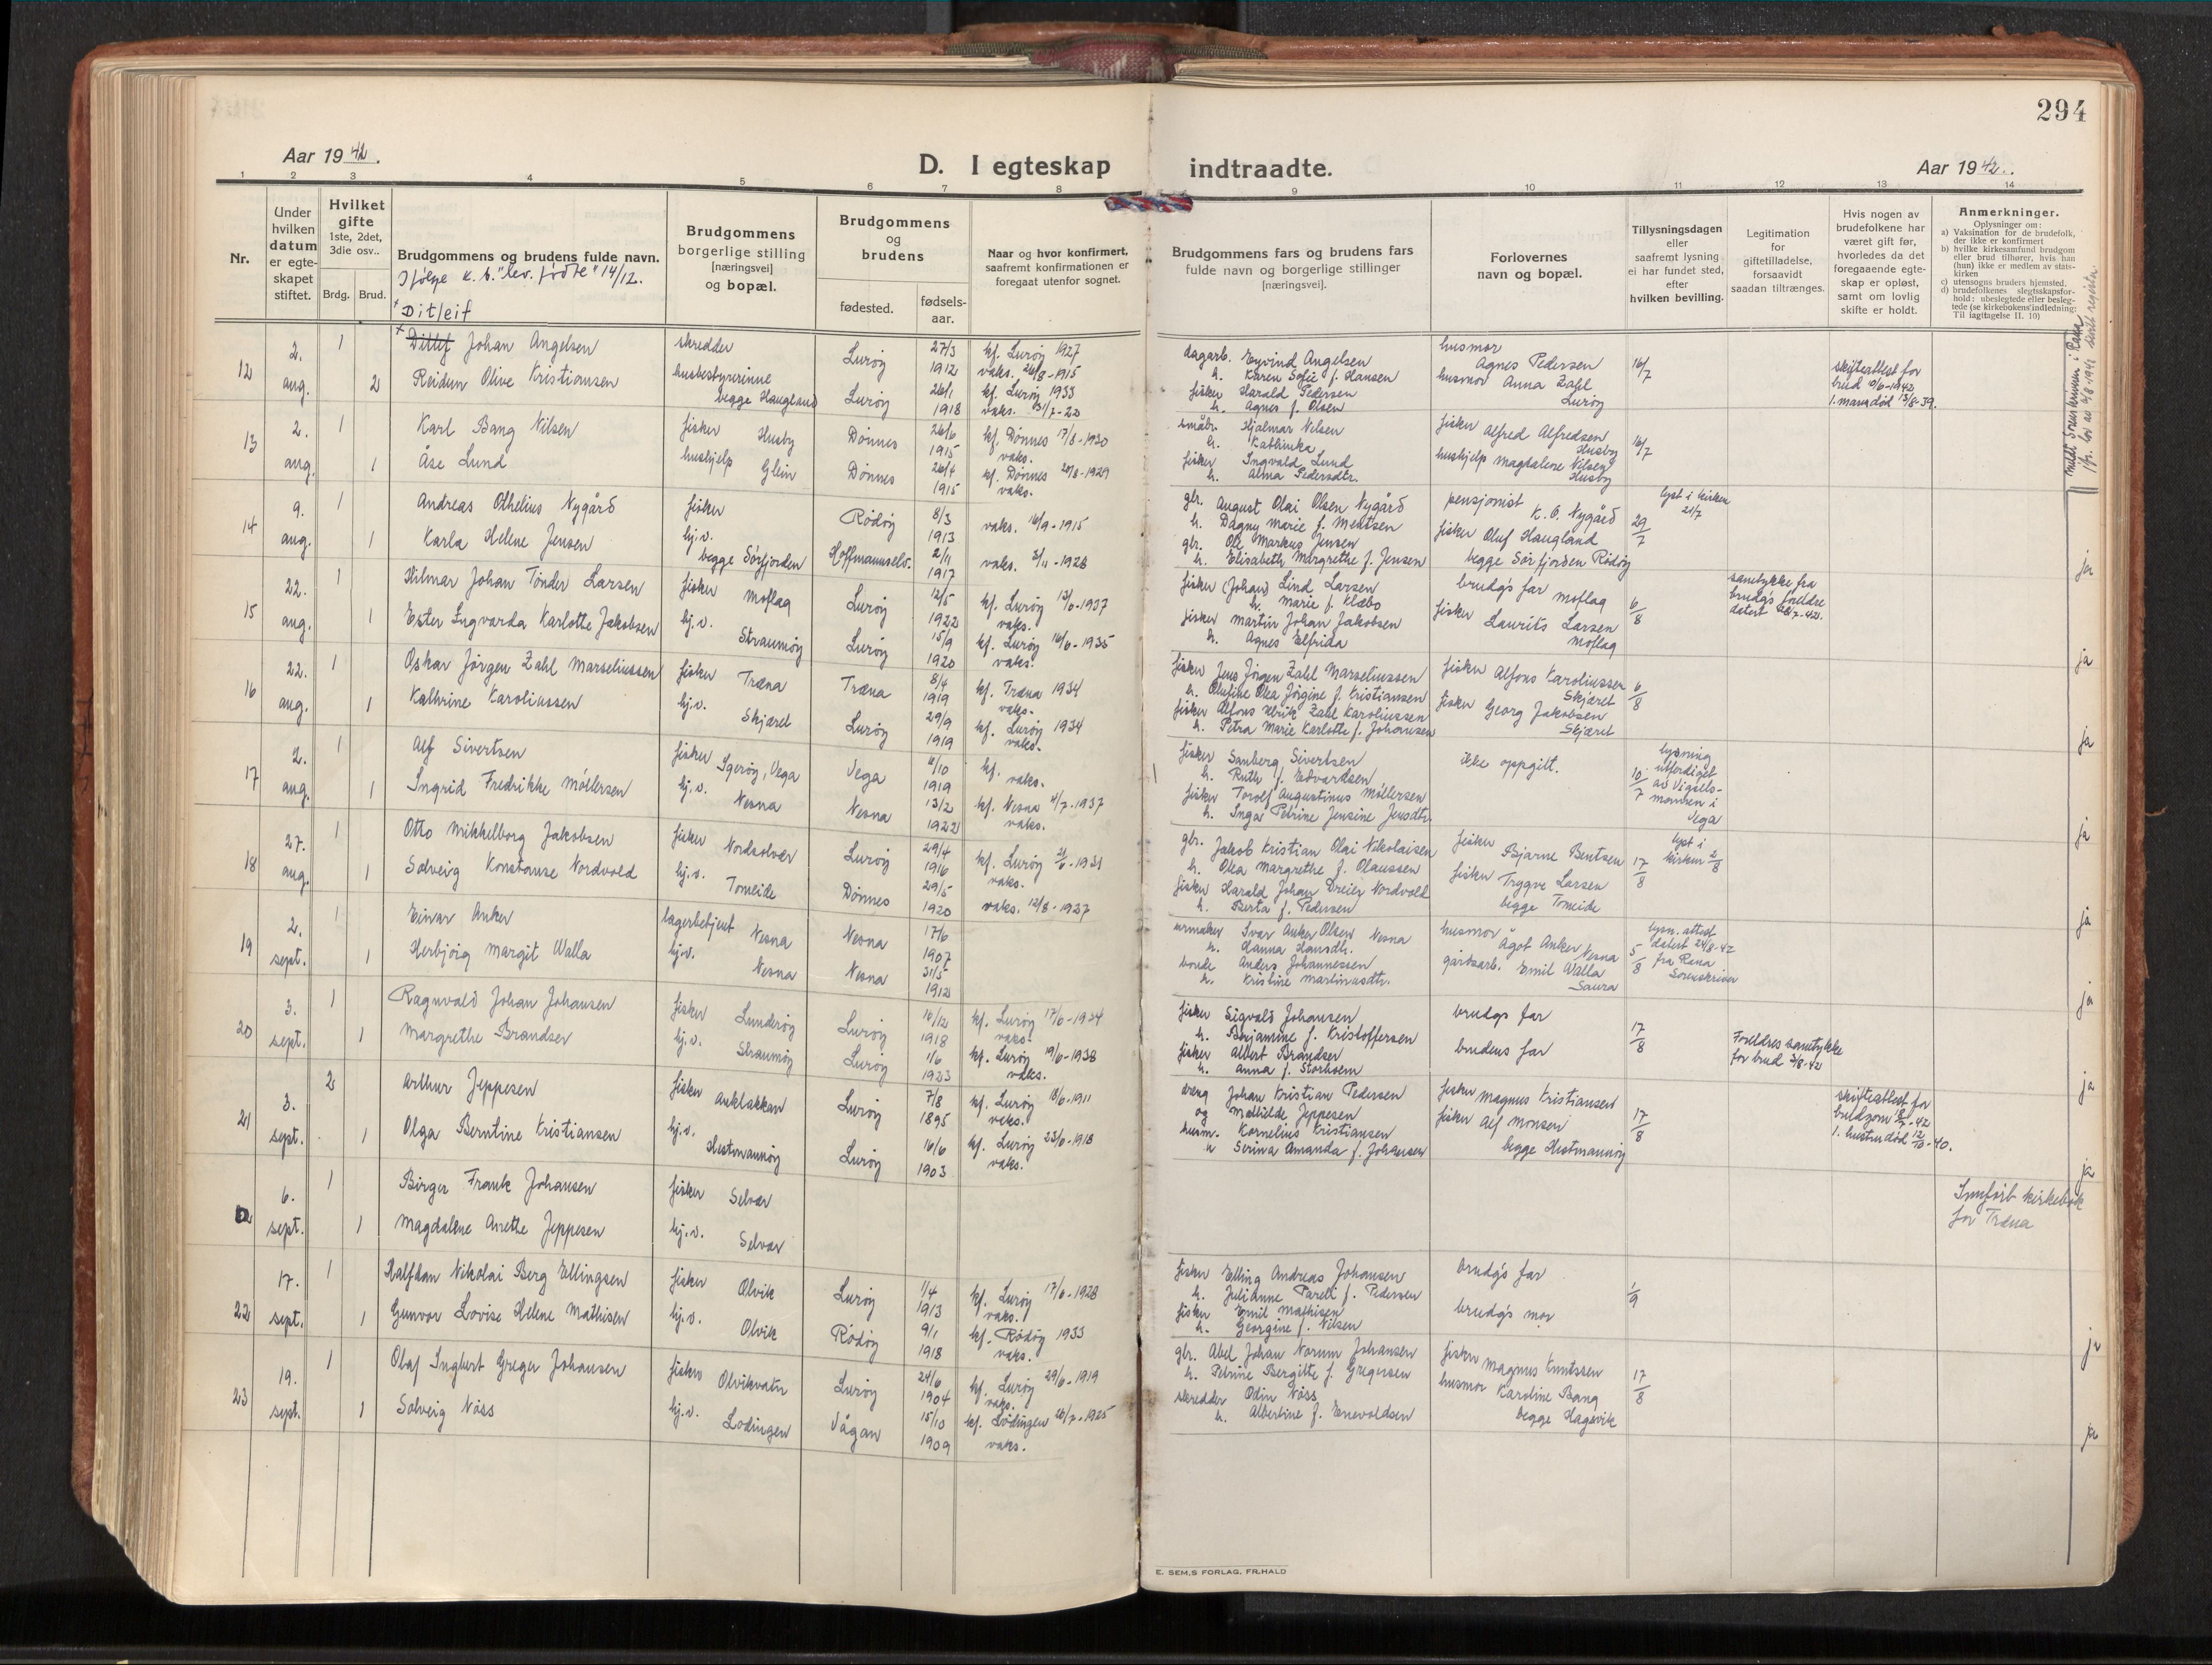 294
Aar 1942.
D. I egteskap
indtraadte.
Aar 1942.
1 2 3 4 5 6 7 8 9 10 11 12 13 14
Nr.
Under hvilken datum er egteskapet stiftet.
Hvilket gifte
1ste, 2det, 3die osv..
Brdg. Brud.
Brudgommens og brudens fulde navn.
Ifølge k.b. "lev. fødte" 14/12.
x Ditleif
Brudgommens borgerlige stilling [næringsvei] og bopæl.
Brudgommens og brudens
fødested.
fødsels-aar.
Naar og hvor konfirmert, saafremt konfirmationen er foregaat utenfor sognet.
Brudgommens fars og brudens fars fulde navn og borgerlige stillinger [næringsvei].
Forlovernes navn og bopæl.
Tillysningsdagen eller saafremt lysning ei har fundet sted, efter hvilken bevilling.
Legitimation for giftetilladelse, forsaavidt saadan tiltrænges.
Hvis nogen av brudefolkene har været gift før, hvorledes da det foregaaende egteskap er opløst, samt om lovlig skifte er holdt.
Anmerkninger.
Oplysninger om:
a) Vaksination for de brudefolk, der ikke er konfirmert
b) hvilke kirkesamfund brudgom eller brud tilhører, hvis han (hun) ikke er medlem av statskirken
c) utensogns bruders hjemsted.
d) brudefolkenes slegtsskapsforhold: ubeslegtede eller beslegtede (se kirkebokens indledning: Til iagttagelse II. 10)
12 2. aug. 1 x Ditlef Johan Angelsen skredder Lurøy 27/3 1912 kf. Lurøy 1927 vaks. 26/8-1915
2 Reidun Olive Kristiansen husbestyrerinne begge Haugland Lurøy 26/1 1918 kf. Lurøy 1933 vaks. 31/7-22
dagarb. Eyvind Angelsen
h. Karen Sofie f. Hansen
fisker Harald Pedersen
h. Agnes f. Olsen
husmor Agnes Pedersen
husmor Anna Zahl Lurøy
16/7
skifteattest for brud 10/6-1942
1. mann død 13/8-39.
13 2. aug. 1 Karl Bang Nilsen fisker Husby Dønnes 26/6 1915 kf. Dønnes 17/8-1930 vaks.
1 Åse Lund hushjelp Glein Dønnes 26/4 1915 kf. Dønnes 20/8-1929 vaks.
småbr. Hjalmar Nilsen
h. Kathinka
fisker Ingvald Lund
h. Alma Pedersdtr.
fisker Alfred Alfredsen Husby
hushjelp Magdalene Nilsen Husby
16/7
14 9. aug. 1 Andreas Othelius Nygård fisker Rödöy 8/3 1913 vaks. 16/9-1915
1 Karla Helene Jensen hj.v. begge Sörfjorden Hoffmannselv. 2/11 1917 vaks. 3/11-1928
gbr. August Olai Olsen Nygård
h. Dagny Marie f. Mentsen
gbr. Ole Markus Jensen
h. Elisabeth Margrethe f. Jensen
pensjonist K. O. Nygård
fisker Oluf Haugland
begge Sörfjorden Rödöy
lyst i kirken 21/7
29/7
ja
15 22. aug. 1 Hilmar Johan Tönder Larsen fisker Moflag Lurøy 12/5 1922 kf. Lurøy 13/6-1937 vaks.
1 Ester Ingvarda Karlotte Jakobsen hj.v. Straumöy Lurøy 15/9 1920 kf. Lurøy 16/6-1935 vaks.
fisker (Johan) Lind Larsen
h. Marie f. Klæbo
fisker Martin Johan Jakobsen
h. Agnes Elfrida
brudg's far Moflag
fisker Laurits Larsen Moflag
6/8
samtykke fra brudg's foreldre datert 28/7-42.
ja
16 22. aug. 1 Oskar Jörgen Zahl Marseliussen fisker Træna Træna 8/4 1919 kf. Træna 1934 vaks.
1 Kathrine Karoliussen hj.v. Skjæret Lurøy 29/9 1919 kf. Lurøy 1934 vaks.
fisker Jens Jörgen Zahl Marseliussen
h. Olufine Olea Jörgine f. Kristiansen
fisker Alfons Ulrik Zahl Karoliussen
h. Petra Marie Karlotte f. Johansen
fisker Alfons Karoliussen Skjæret
fisker Georg Jakobsen Skjæret
6/8
ja
17 2. aug. 1 Alf Sivertsen fisker Igeröy, Vega Vega 4/10 1919 kf. vaks.
1 Ingrid Fredrikke Möllersen hj.v. Nesna Nesna 13/2 1922 kf. Nesna 4/7-1937 vaks.
fisker Sanberg Sivertsen
h. Ruth f. Edvardsen
fisker Torolf Augustinus Möllersen
h. Inga Petrine Jensine Jensdtr.
ikke oppgitt.
10/7
lysning utferdiget av Vigselsmannen i Vega
ja
18 27. aug. 1 Otto Mikkelborg Jakobsen fisker Nordsolvær Lurøy 29/4 1916 kf. Lurøy 21/6-1931 vaks.
1 Solveig Konstanse Nordvold hj.v. Tomeide Dönnes 29/5 1920 vaks. 12/8-1927
gbr. Jakob Kristian Olai Nikolaisen
h. Olea Margrethe f. Olaussen
fisker Harald Johan Dreier Nordvold
h. Berta f. Pedersen
fisker Bjarne Bentsen
fisker Trygve Larsen
begge Tomeide
17/8
lyst i kirken 2/8
ja
19 2. sept. 1 Einar Anker lagerbetjent Nesna Nesna 17/6 1907
1 Herbjörg Margit Walla hj.v. Nesna Nesna 31/5 1912
urmaker Ivar Anker Olsen Nesna
h. Hanna Hansdtr.
bonde Anders Johannessen
h. Kristine Martinusdtr.
husmor Ågot Anker Nesna
gårdsarb. Emil Walla Saura
5/8
lysn. attest datert 24/8-42 fra Rana Sorenskriver
ja
20 3. sept. 1 Ragnvald Johan Johansen fisker Lunderöy Lurøy 16/12 1918 kf. Lurøy 17/6-1934 vaks.
1 Margrethe Brandser hj.v. Straumöy Lurøy 1/6 1923 kf. Lurøy 19/6-1938 vaks.
fisker Sigvald Johansen
h. Benjamine f. Kristoffersen
fisker Albert Brandser
h. Anna f. Storholm
brudg's far
brudens far
17/8
Foreldres samtykke for brud 3/8-42
ja
21 3. sept. 2 Arthur Jeppesen fisker Auklakkan Lurøy 7/8 1895 kf. Lurøy 18/6-1911 vaks.
1 Olga Berntine Kristiansen hj.v. Hestmannöy Lurøy 16/6 1903 kf. Lurøy 23/6-1918 vaks.
Johan Kristian Pedersen
og Mathilde Jeppesen
husm. Kornelius Kristiansen
h Serina Amanda f. Johansen
fisker Magnus Kristiansen
fisker Alf Monsen
begge Hestmannöy
17/8
skifteattest for brudgom 18/7-42
1. hustru död 12/10-40.
ja
6. sept. 1 Birger Frank Johansen fisker Selvær
1 Magdalene Anette Jeppesen hj.v. Selvær
Innfört kirkebok for Træna
22 17. sept. 1 Halfdan Nikolai Berg Ellingsen fisker Olvik Lurøy 1/4 1913 kf. Lurøy 17/6-1928 vaks.
1 Gunvor Lovise Helene Mathisen hj.v. Olvik Rödöy 9/1 1918 kf. Rödöy 1933 vaks.
fisker Elling Andreas Johansen
h. Julianne Pareli f. Pedersen
fisker Emil Mathisen
h. Georgine f. Nilsen
brudg's far
brudg's mor
1/9
ja
23 19. sept. 1 Olaf Ingbert Greger Johansen fisker Olvikvatn Lurøy 24/6 1904 kf. Lurøy 29/6-1919 vaks.
1 Solveig Nöss hj.v. Lödingen Vågan 15/10 1909 kf. Lödingen 26/7-1925 vaks.
gbr. Abel Johan Norum Johansen
h. Petrine Bergitte f. Gregersen
skredder Odin Nöss
h. Albertine f. Enevoldsen
fisker Magnus Knutssen
husmor Karoline Bang
begge Hagevik
17/8
ja
E. SEM,S FORLAG, FR.HALD